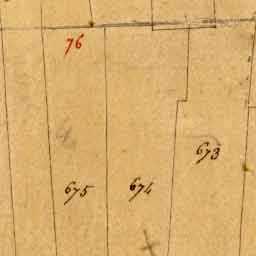 76
673
675 674